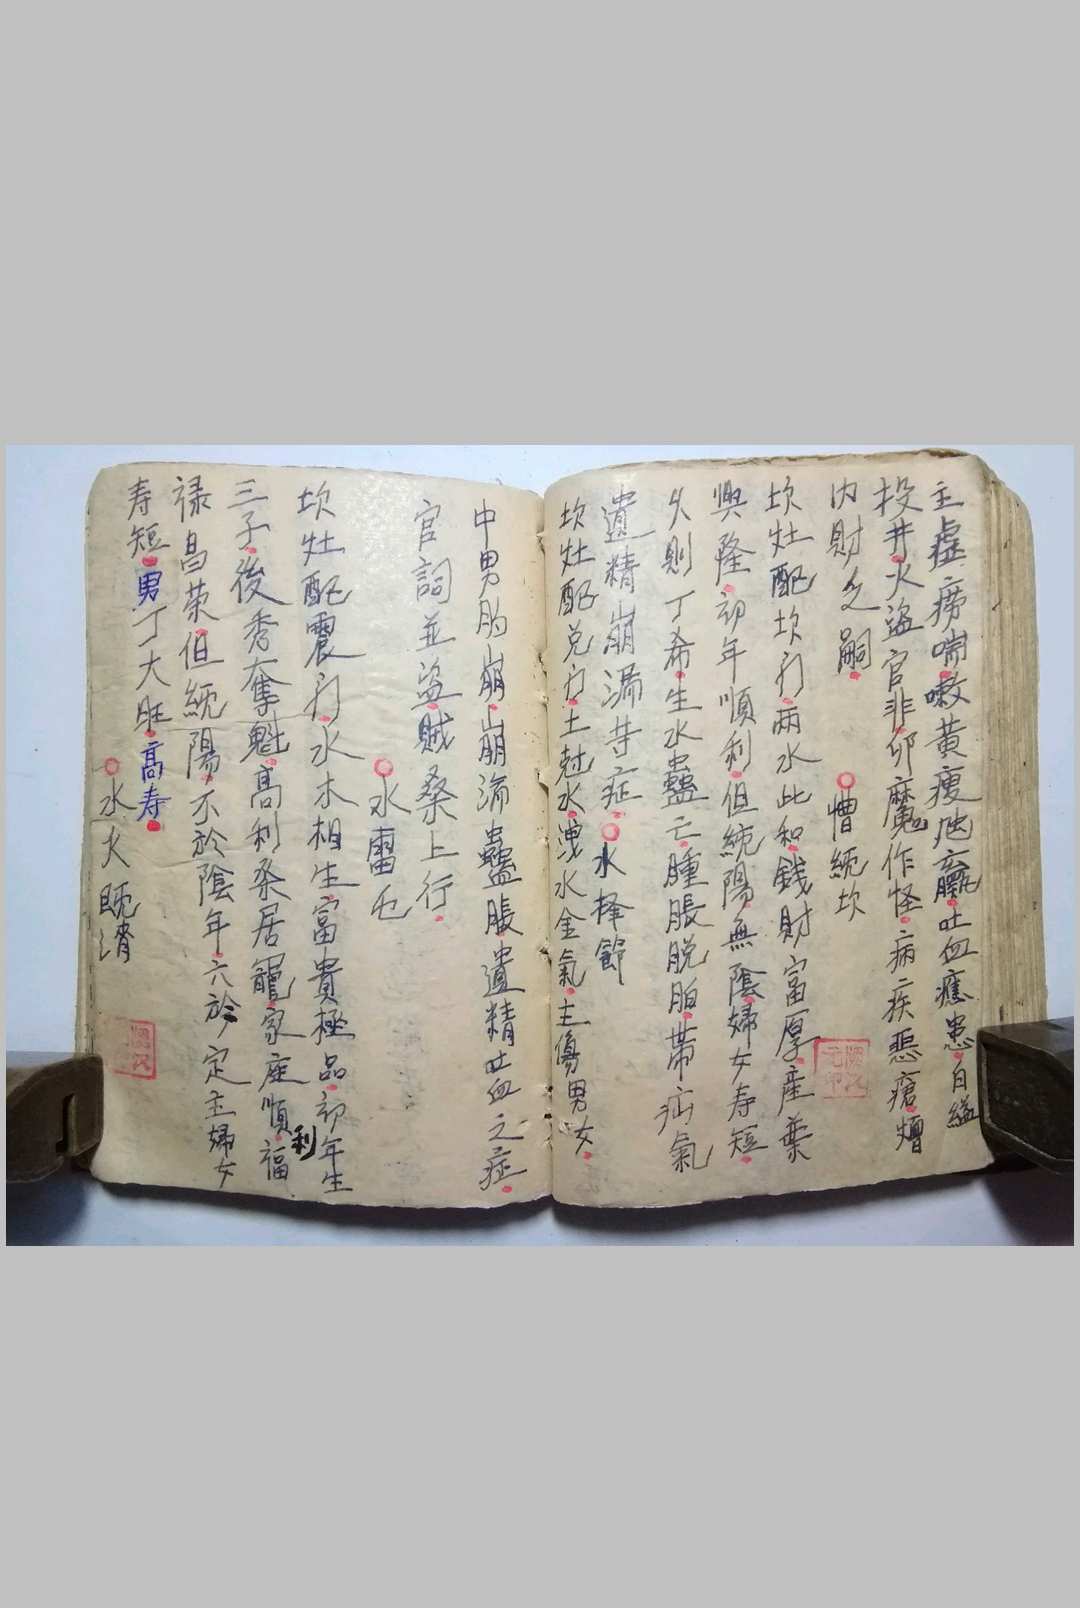 主虛癆喘嗽黃瘦尫羸吐血癆患自縊
投井火盜官非邪魔作怪病疾惡瘡
內財乏嗣
純坎
坎灶配坎门兩水比和錢財富厚產業
興隆初年順利但純陽無陰婦女寿短
久則丁希生水蠱亡腫脹脫胎帶疝氣
遺精崩漏等症
水泽節
坎灶配兑门土尅水洩水金氣主傷男女
中男胎崩崩漏蠱脹遺精吐血之症
官詞並盜賊桑上行
水雷屯
坎灶配震门水木相生富貴極品初年生
三子後秀奪魁高利桑居寵家座順利福
禄昌荣但純陽不於陰年六於定主婦女
寿短男丁大旺高寿
水火既濟